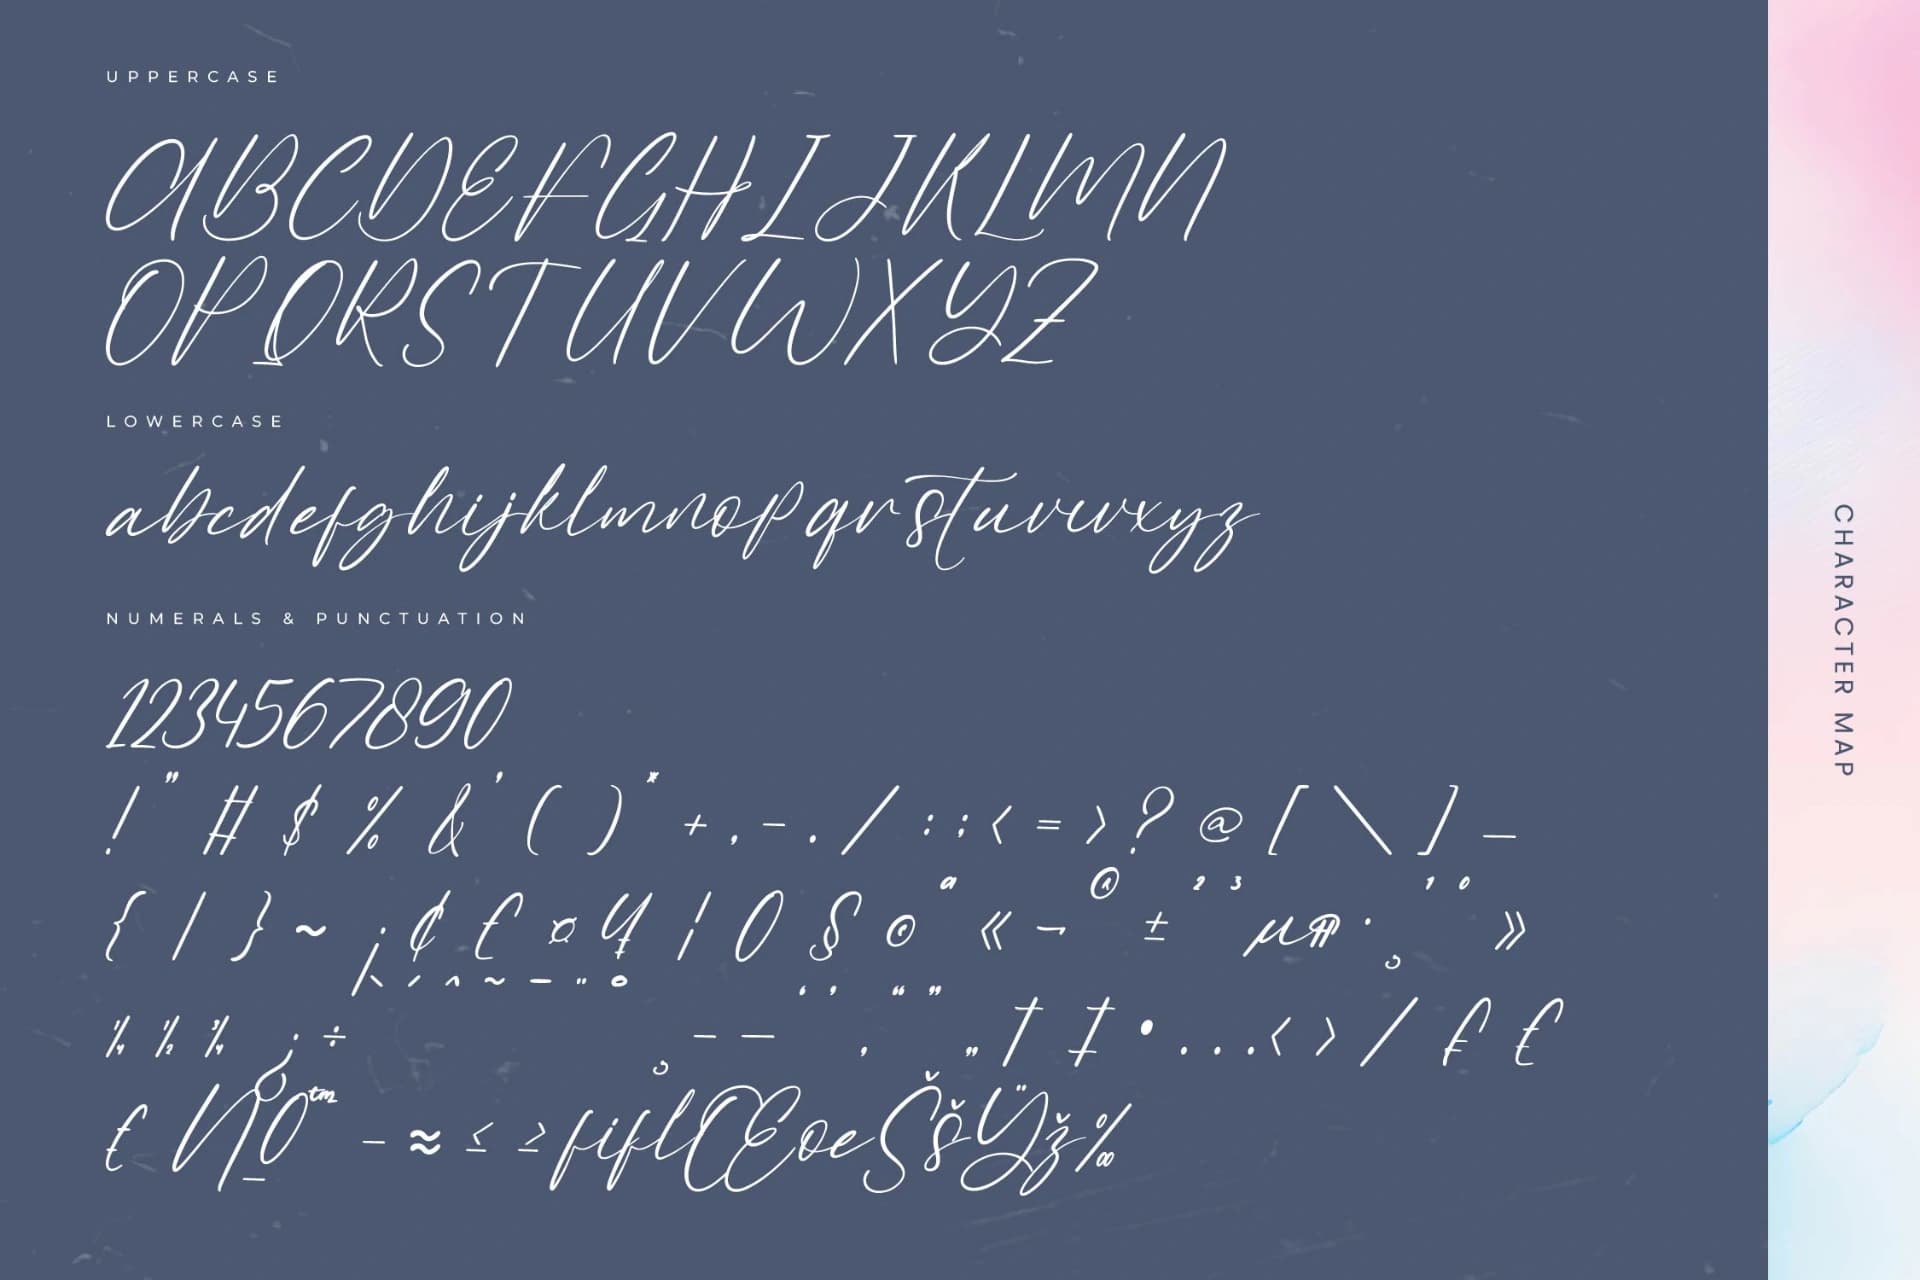 UPPERCASE
ABCDEFGHIJKLMN
OPQRSTUVWXYZ
LOWERCASE
abcdefghijklmnopqrstuvwxyz
NUMERALS & PUNCTUATION
1234567890
! " # $ % & ' ( ) * + , - . / : ; < = > ? @ [ \ ] _
{ | } ~ ¡ ¢ £ ¤ ¥ ¦ 0 § © ª « ¬ ® ± ² ³ µ ¶ · ¸ ¹ º »
` ´ ^ ~ ¯ ¨ ° ‘ ’ “ ”
¼ ½ ¾ ¿ ÷ ¸ – — ‚ „ † ‡ • … ‹ › ⁄ ₣ £
€ № ™ − ≈ ≤ ≥ fi fl Œ œ Š š Ÿ ž ‰
CHARACTER MAP